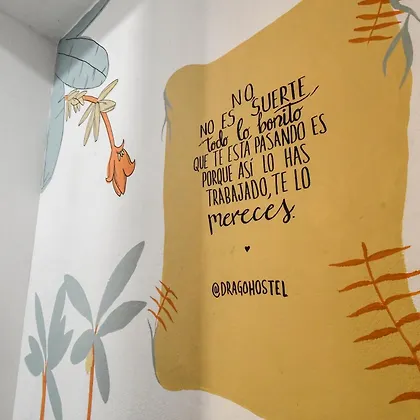 NO
NO ES SUERTE
todo lo bonito
QUE TE ESTA PASANDO ES
PORQUE ASÍ LO HAS
TRABAJADO, TE LO
mereces.
@DRAGOHOSTEL